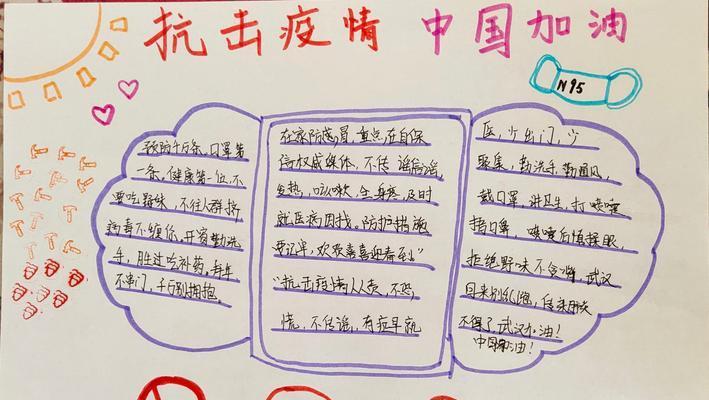 抗击疫情 中国加油
N95
预防千万条,口罩第
一条,健康第一位,不
要吃野味,不往人群挤,
病毒不缠你,开窗勤洗
手,胜过吃补药,拜年
不串门,千万别拥抱。
在家防感冒,重点在自保
信权威媒体,不传谣信谣,
发热,咳嗽,全身疼,及时
就医病因找。防护措施
要记牢,欢欢喜喜迎春至。"
"抗击疫情人人责,不恐
慌,不传谣,有症早就
医,少出门,少
聚集,勤洗手,勤通风,
戴口罩,讲卫生,打喷嚏
捂口鼻,咳嗽后慎揉眼,
拒绝野味不食,武汉
归来别乱跑,
不得了,武汉加油!
中国加油!